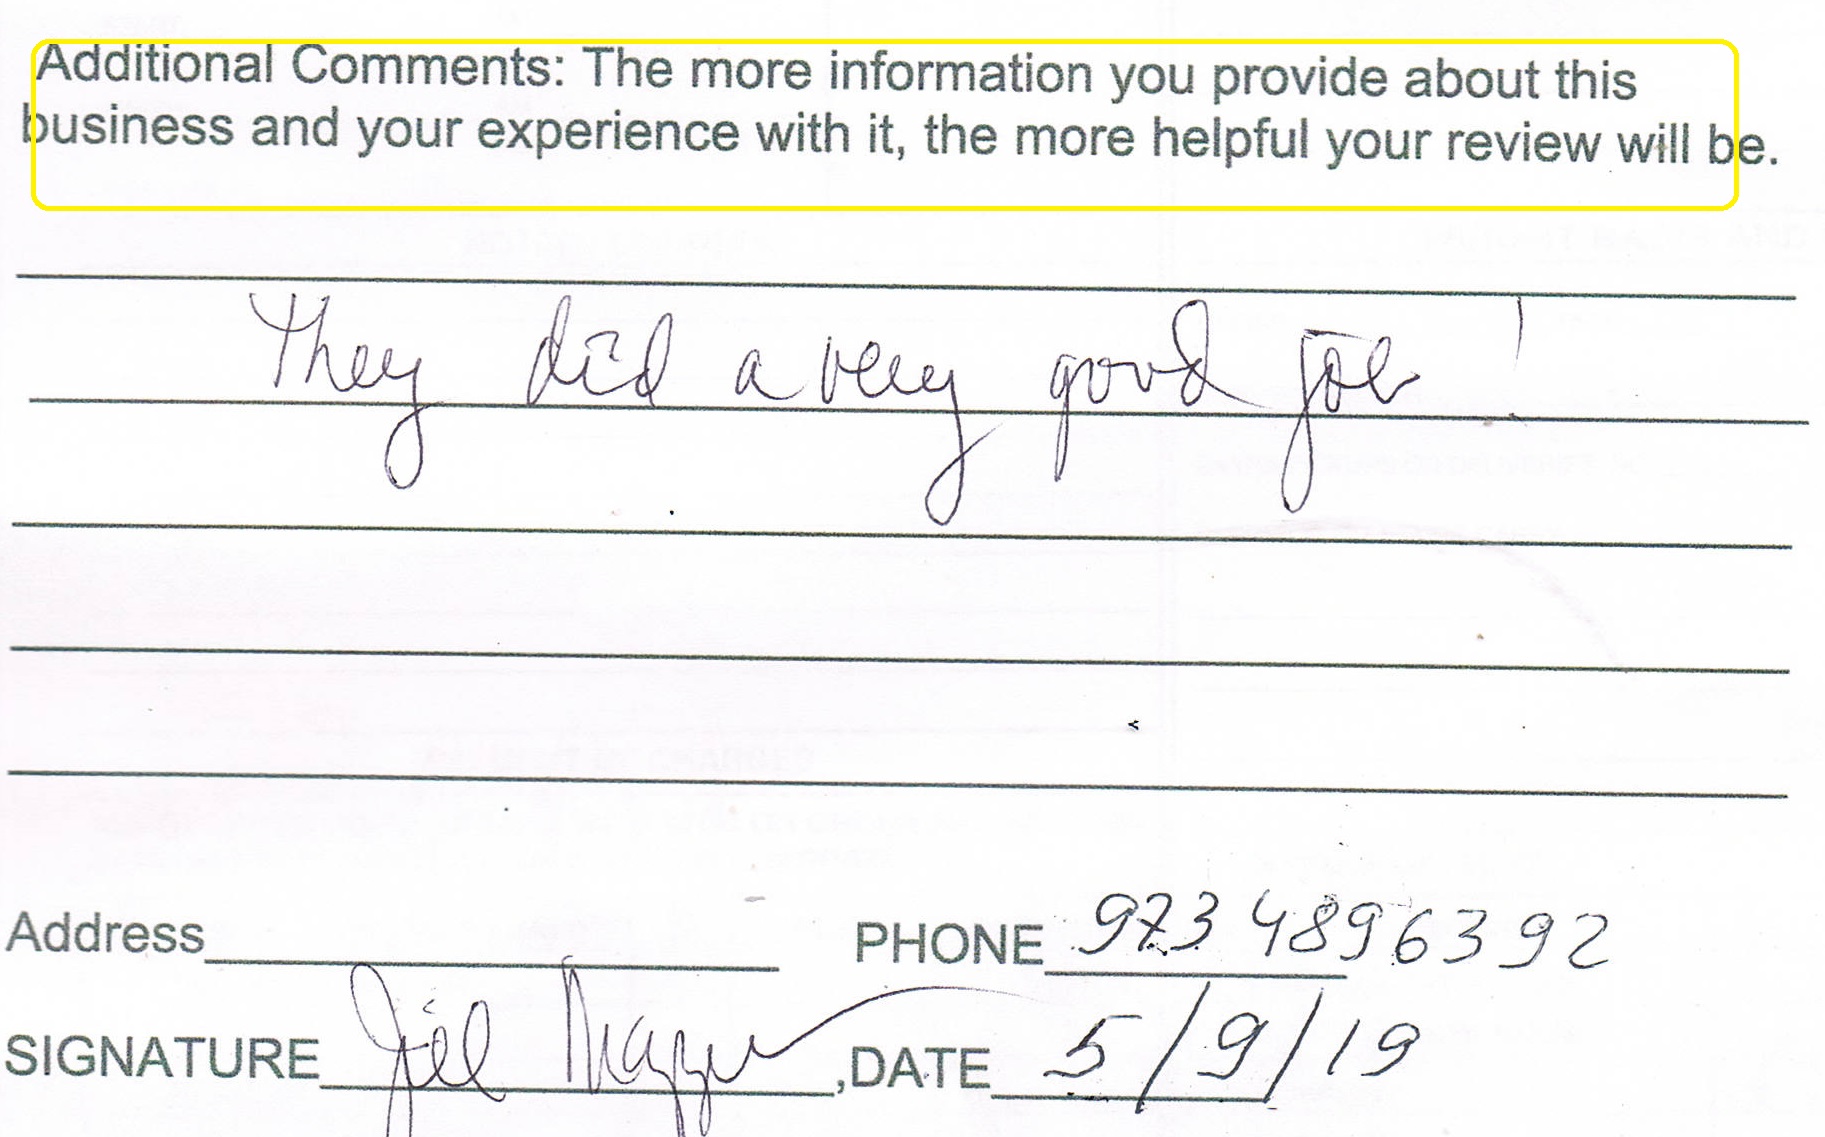 Additional Comments: The more information you provide about this
business and your experience with it, the more helpful your review will be.
They did a very good job!
Address PHONE 973 4896392
SIGNATURE Jill , DATE 5/9/19